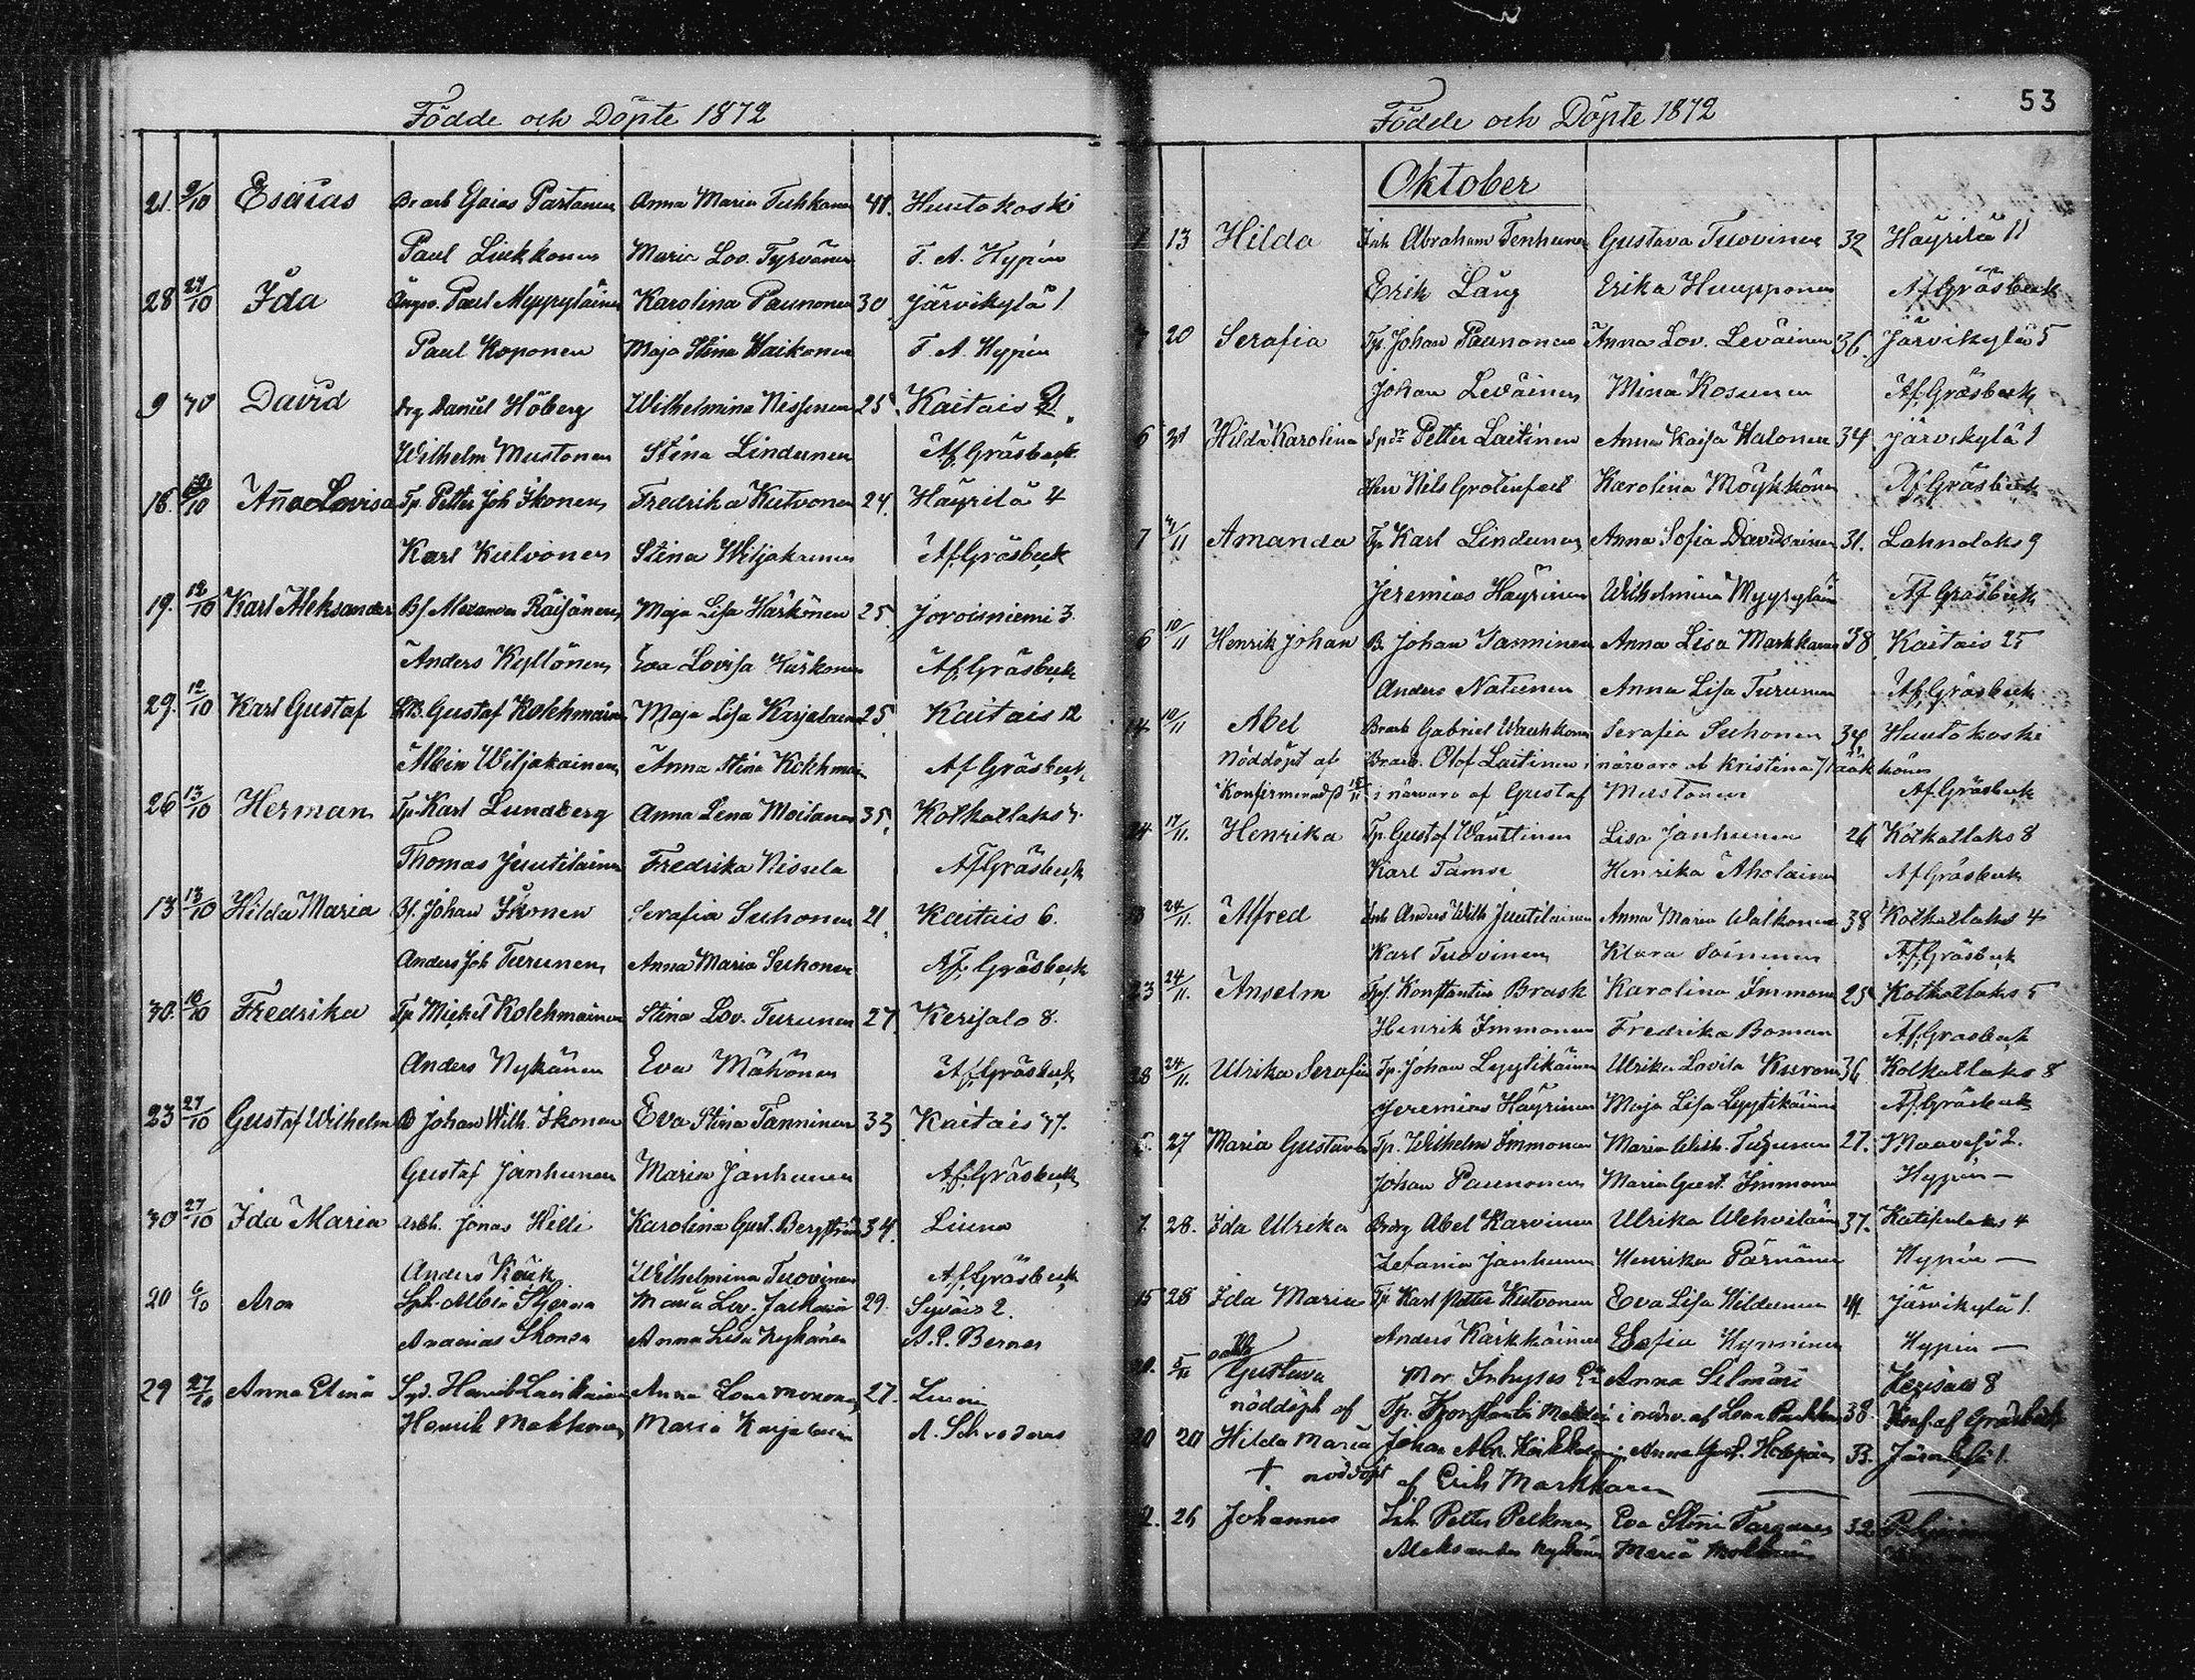 Födde och Döpte 1872
21. 9/10 Esaias Br arb Esaias Partanen Anna Maria Tuhkanen 41. Huutokoski
Paul Liukkonen Maria Lov. Tyrvänen F. A. Hypén
28 27/10 Ida Paul Myyryläinen Karolina Paunonen 30 Järvikylä 1
Paul Koponen Maja Stina Waikonen F. A. Hypén
9 David Drg Daniel Höberg Wilhelmina Nissinen 25. Kaitais
Wilhelm Mustonen Stina Lindunen Af Gräsbeck
18. Anna Lovisa Tp. Petter Joh Ikonen Fredrika Kutvonen 24. Häyrilä 4
Karl Kutvonen Stina Wiljakainen Af Gräsbeck
19. 12/10 Karl Aleksander Bf. Alexander Räisänen Maja Lisa Härkönen 25. Joroisniemi 3.
Anders Kyllönen Eva Lovisa Härkönen Af Gräsbeck
29. 12/10 Karl Gustaf Gustaf Kolehmainen Maja Lisa Karjalainen 25. Kaitais 12
Albin Wiljakainen Anna Stina Kolehmainen Af Gräsbeck
26 13/10 Herman Tp. Karl Lundberg Anna Lena Moilanen 35. Kotkatlaks
Thomas Juutilainen Fredrika Nissela Af Gräsbeck
13 13/10 Hilda Maria Bf. Johan Ikonen Serafia Suhonen 21. Kaitais 6.
Anders Joh Turunen Anna Maria Suhonen Af. Gräsbeck
30. Fredrika Tp Michel Kolehmainen Stina Lov. Turunen 27. Kerisalo 8.
Anders Nykänen Eva Mähönen Af. Gräsbeck
23 27/10 Gustaf Wilhelm B Johan Wilh. Ikonen Eva Stina Tanninen 33. Kaitais 47.
Gustaf Janhunen Maria Janhunen Af. Gräsbeck
30 27/10 Ida Maria Arbh. Jonas Hilli Karolina Gust. Bergström 34. Liuna
Anders Käuk Wilhelmina Tuovinen Af. Gräsbeck
20 6/10 Aron Albin Stjerna Maria Lov. 29. Syväis 2.
Ananias Ikonen Anna Lisa Nykänen A. P. Berner
29 27/10 Anna Elina Anna Lena Mononen 27.
Henrik Makkonen Maria Karjalainen A. Schroderus
Födde och Döpte 1872 53
Oktober
1 13 Hilda Inh Abraham Tenhunen Gustava Tuovinen 32 Häyrilä 11
Erik Lång Erika Huupponen Af. Gräsbeck
20 Serafia Tp. Johan Paunonen Anna Lov. Leväinen 36. Järvikylä 5
Johan Leväinen Mina Kosunen Af. Gräsbeck
6 21 Hilda Karolina Petter Laitinen Anna Kaisa Halonen 34. Järvikylä 1
Herr Nils Grotenfelt Karolina Möykkönen Af Gräsbeck
7 Amanda Tp Karl Lindunen Anna Sofia Davidsainen 31. Lahnalaks 9
Jeremias Häyrinen Wilhelmina Myyryläinen Af Gräsbeck
6 10/11 Henrik Johan B. Johan Tanninen Anna Lisa Markkanen 38. Kaitais 25
Anders Natunen Anna Lisa Turunen Af. Gräsbeck
14 10/11 Abel Br arb Gabriel Wauhkonen Serafia Suhonen 34 Huutokoski
Nöddöpt af Br arb. Olof Laitinen i närvaro af Kristina
Konfirmerad i närvaro af Gustaf Mustonen Af. Gräsbeck
24 17/11. Henrika Tp. Gustaf Wänttinen Lisa Janhunen 26 Kotkatlaks 8
Karl Tamse Henrika Aholainen Af Gräsbeck
24/11. Alfred Inh Anders Wilh Juutilainen Anna Maria Walkonen 38 Kotkatlaks 4
Karl Tuovinen Klara Soininen Af. Gräsbeck
23 24/11. Anselm Konstantin Brask Karolina Immonen 25 Kotkatlaks 5
Henrik Immonen Fredrika Boman Af. Gräsbeck
28 24/11. Ulrika Serafia Tp. Johan Lyytikäinen Ulrika Lovisa 36. Kotkatlaks 8
Jeremias Häyrinen Maja Lisa Lyytikäinen Af. Gräsbeck
6. 27 Maria Gustava Tp. Wilhelm Immonen Maria Wilh. Turunen 27. Maavesi 2.
Johan Paunonen Maria Gust. Immonen Hypén —
7. 28. Ida Ulrika Abel Karvinen Ulrika Wehviläinen 37. 4
Zefania Janhunen Henrika Pärnänen Hypén —
15 28 Ida Maria Tp. Karl Petter Kutvonen Eva Lisa Hildunen 41. Järvikylä 1.
Anders Kärkkäinen Sofia Hynninen Hypén —
20. 5/11 oäkta Gustava Mor. Inhyses Anna Silmäri Kerisalo 8
nöddöpt af Tp. Konstantin i närv. af Lena 38. Konf. af Gräsbeck
20 20 Hilda Maria Johan Abr. Anna Gust. 33. Järvikylä 1.
† nöddöpt af Erik Markkanen
2. 26 Johannes Inh Petter Pelkonen Eva Stina 32
Aleksander Nykänen Maria